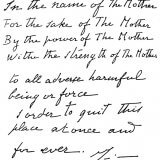 In the name of The Mother
For the sake of The Mother
By the power of The Mother
With the strength of The Mother
to all adverse harmful
being or force
I order to quit this
place at once and
for ever.